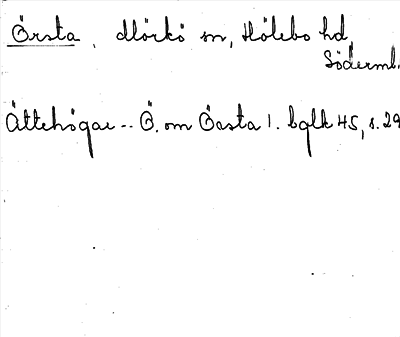 Örsta, Mörkö sn, Hölebo hd,
Söderml.
Ättehögar -- Ö. om Öasta 1. bglk 45, s. 29